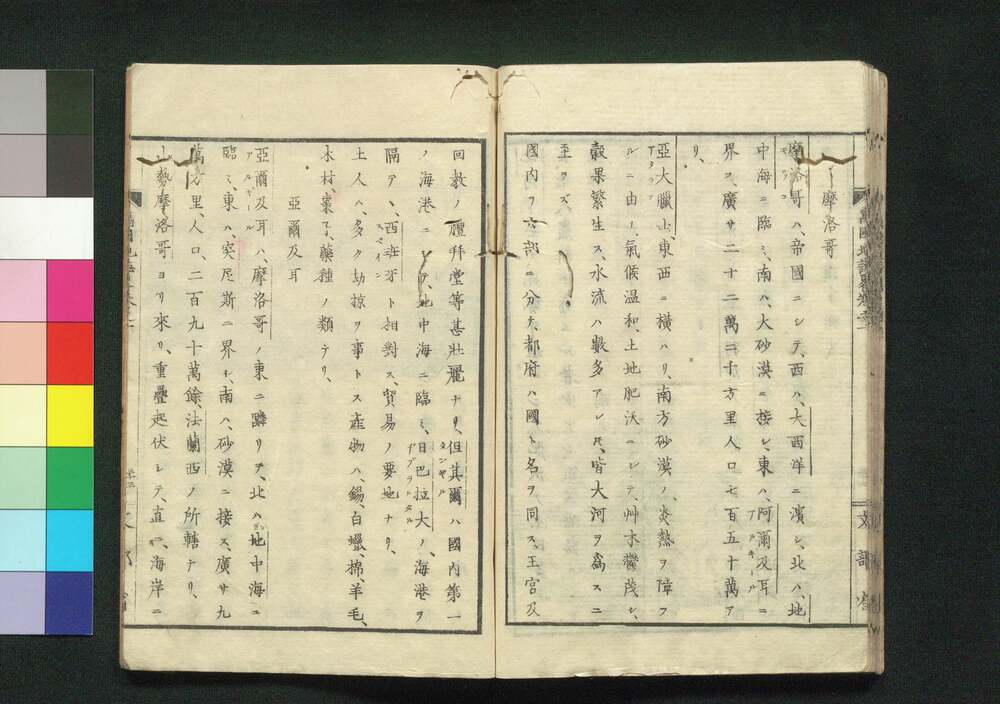 摩洛哥
摩洛哥ハ、帝國ニシテ、西ハ、大西洋ニ濱シ、北ハ、地
中海ニ臨ミ、南ハ、大砂漠ニ接シ、東ハ、阿爾及耳ニ
界ス、廣サ二十二萬二千方里人口七百五十萬ア
リ、
亞大臘山、東西ニ横ハリ、南方砂漠ノ炎熱ヲ障フ
ルニ由リ、氣候温和、土地肥沃ニシテ、艸木鬱茂シ、
穀果繁生ス、水流ハ數多アレ𪜈、皆大河ヲ爲スニ
至ラズ、
國内ヲ六部ニ分チ、都府ハ國ト名ヲ同ス、王宮及
回教ノ禮拜堂等甚壯麗ナリ、但其爾ハ國内第一
ノ海港ニシテ、地中海ニ臨ミ、日巴拉大ノ、海港ヲ
隔テヽ、西班牙ト相對ス、貿易ノ要地ナリ、
土人ハ、多ク劫掠ヲ事トス産物ハ、錫、白蠟、棉、羊毛、
木材、棗子、藥種ノ類ナリ、
亞爾及耳
亞爾及耳ハ、摩洛哥ノ東ニ隣リテ、北ハ地中海ニ
臨ミ、東ハ、突尼斯ニ界シ、南ハ、砂漠ニ接ス、廣サ九
萬方里、人口、二百九十萬餘、法蘭西ノ所轄ナリ、
山勢、摩洛哥ヨリ來リ、重疊起伏シテ、直ニ、海岸ニ
文部省